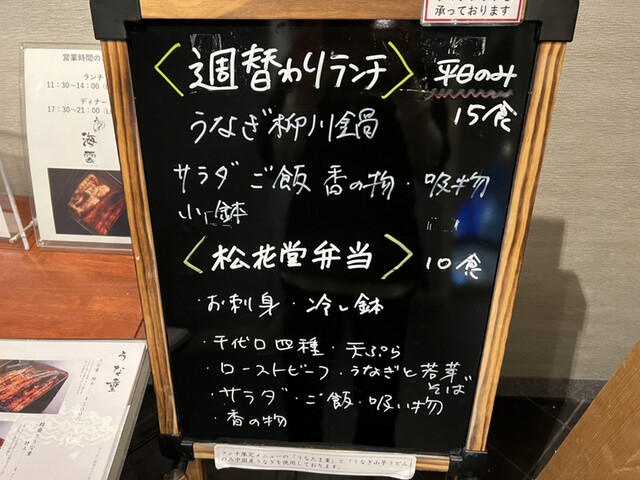 承っております
営業時間の
ランチ
11:30〜14:00
ディナー
17:30〜21:00
〈週替わりランチ〉 平日のみ
15食
うなぎ柳川鍋
サラダ ご飯 香の物・吸物
小鉢
〈松花堂弁当〉 10食
・お刺身・冷し鉢
・千代口四種・天ぷら
・ローストビーフ・うなぎと若芽そば
・サラダ・ご飯・吸い物
・香の物
うな重
ランチ限定メニューの「うなたま重」と「うなぎ山芋うどん」
のみ中国産うなぎを使用しております。